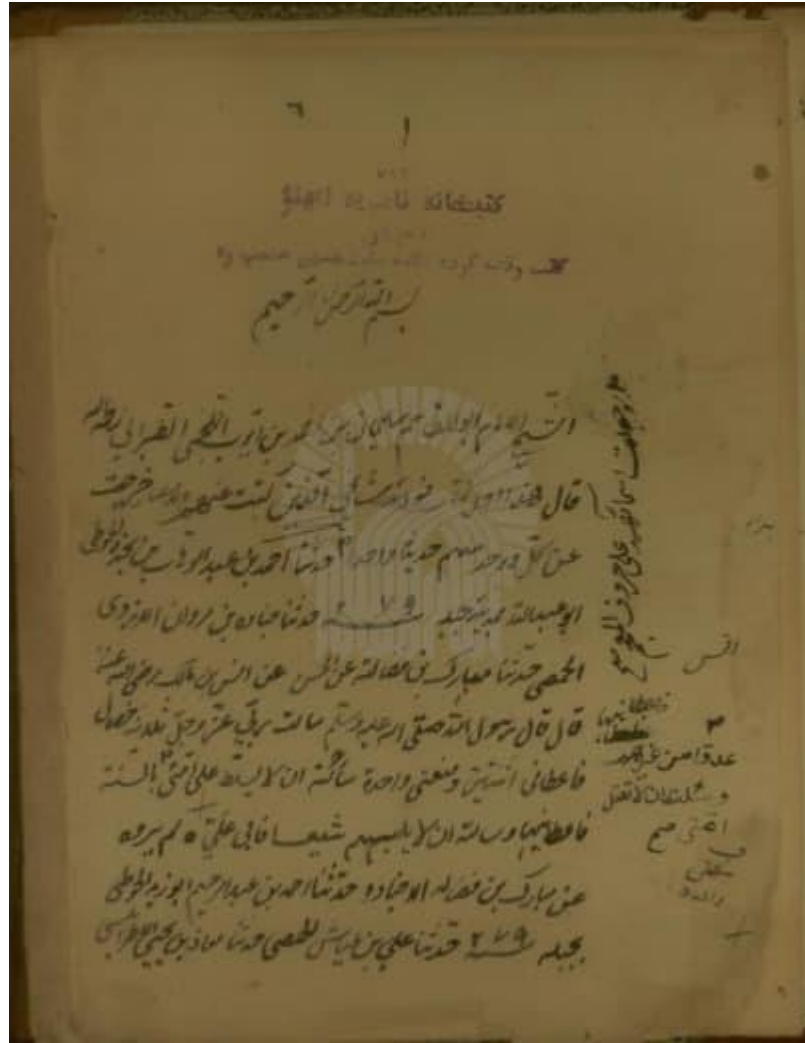 ٦
١
كتبخانه ناصريه لكهنؤ
بسم الله الرحمن الرحيم
الشيخ الامام ابو القاسم سليمان بن احمد بن ايوب اللخمي الطبراني
قال هذا اول كتاب فوائد مشايخي الذين كتبت عنهم خرجت
عن كل واحد منهم حديثا واحدا حدثنا احمد بن عبد الوهاب بن نجدة الحوطي
ابو عبد الله بمدينة جبلة سنة ٢٧٩ حدثنا جنادة بن مروان الازدي
الحمصي حدثنا مبارك بن فضالة عن الحسن عن انس بن مالك رضي الله عنه
قال قال رسول الله صلى الله عليه وسلم سالت ربي عز وجل ثلاث خصال
فاعطاني اثنتين ومنعني واحدة سألته ان لا يسلط على امتي بالسنة
فاعطانيها وسالته ان لا يلبسهم شيعا فابى علي لم يروه
عن مبارك بن فضالة الا جنادة حدثنا احمد بن عبد الرحيم ابو زيد الحوطي
بجبلة سنة ٢٧٩ حدثنا علي بن عياش الحمصي حدثنا معاذ بن يحيى الاطرابلسي
اسمائهم على حروف المعجم صح
فاعطانيها
عدوا من غيرهم
وسالته ان لا تقتل
امتي صح